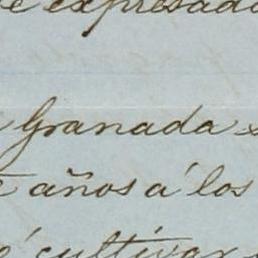 expresado
Granada
años á los
cultivar